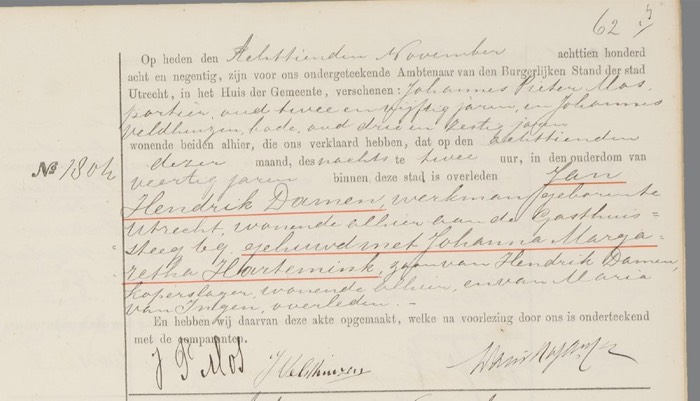 62
Op heden den Achttienden November achttien honderd
acht en negentig, zijn voor ons ondergeteekende Ambtenaar van den Burgerlijken Stand der stad
Utrecht, in het Huis der Gemeente, verschenen: Johannes Pieter Mos,
portier, oud twee en vijftig jaren, en Johannes
Veldhuizen, bode, oud drie en zestig jaren
wonende beiden alhier, die ons verklaard hebben, dat op den achttienden
dezer maand, des nachts te twee uur, in den ouderdom van
No 1804 veertig jaren binnen deze stad is overleden Jan
Hendrik Damen, werkman, geboren te
Utrecht, wonende alhier aan de Gasthuis=
steeg gehuwd met Johanna Marga=
retha Hartemink, zoon van Hendrik Damen,
Koperslager, wonende alhier, en van Maria
van Ingen, overleden. —
En hebben wij daarvan deze akte opgemaakt, welke na voorlezing door ons is onderteekend
met de comparanten.
J P Mos J Veldhuizen